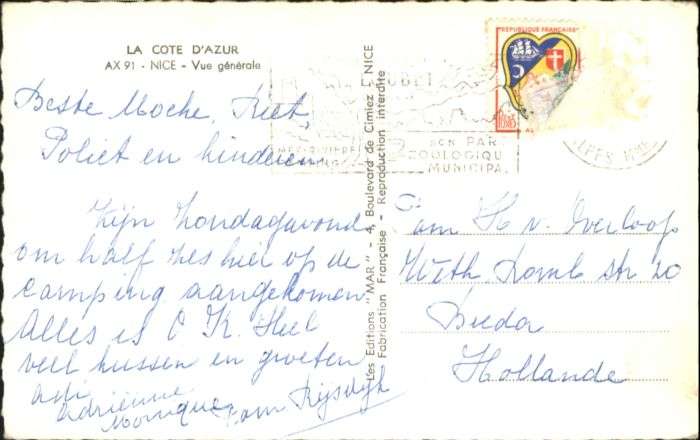 LA COTE D'AZUR
AX 91 - NICE - Vue générale
Beste Moche, Riet,
Poliet en kinderen
Zijn Zondagavond
om half zes hier op de
camping aangekomen
Alles is O.K. Heel
veel kussen en groeten
Adrienne
Monique
Les Editions "MAR" - 4, Boulevard de Cimiez - NICE
Fabrication Française - Reproduction interdite
REPUBLIQUE FRANÇAISE
SON PAR
ZOOLOGIQU
MUNICIPA.
Fam H v. Overloop
Weth. Romb str 20
Breda
Hollande